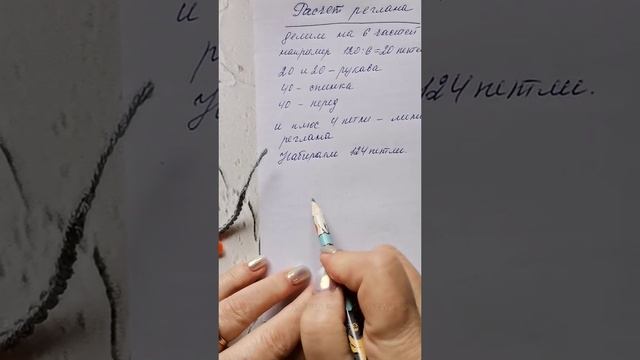 Расчет реглана
делим на 6 частей
например 120:6=20 петель
20 и 20 - рукава
40 - спинка
40 - перед
и плюс 4 петли - линии
реглана
Набираем 124 петли.